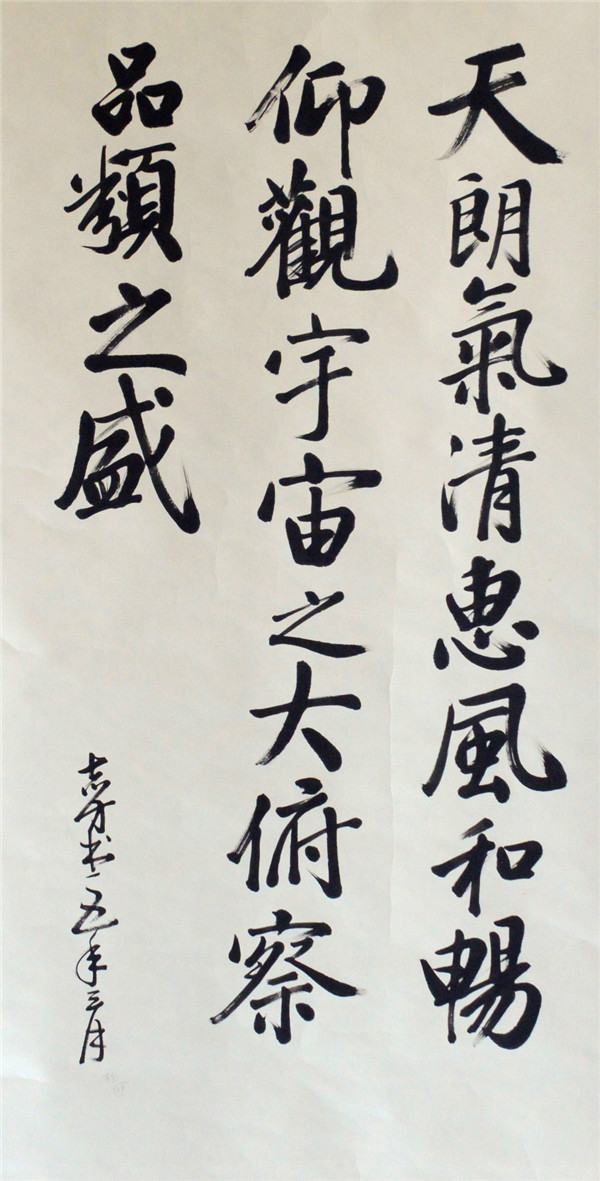 天朗氣清惠風和暢
仰觀宇宙之大俯察
品類之盛
志方书二五年三月